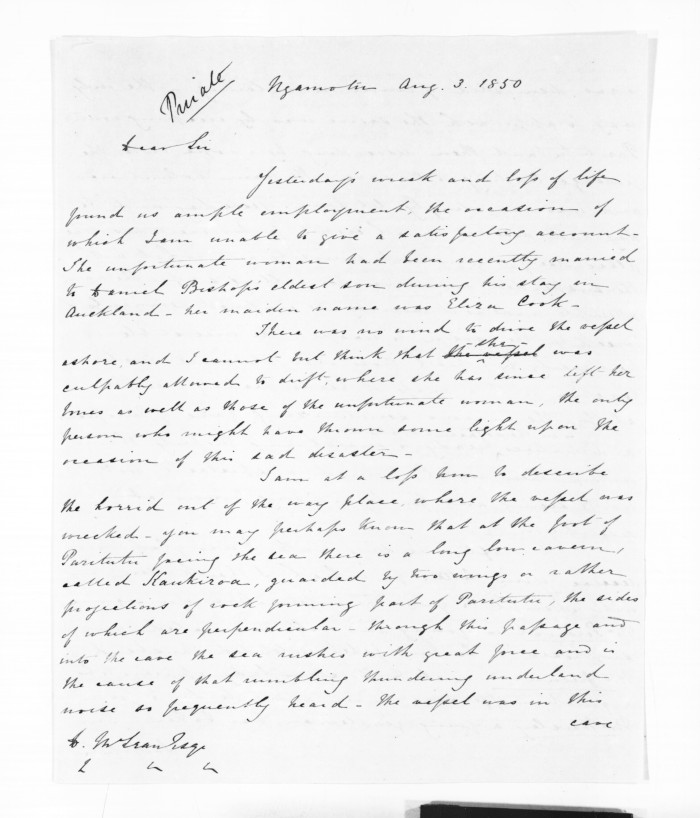 Private
Ngamotu Aug. 3. 1850
Dear Sir
Yesterday's wreck and loss of life
found us ample employment, the occasion of
which I am unable to give a satisfactory account -
The unfortunate woman had been recently married
to Daniel Bishop's eldest son during his stay in
Auckland - her maiden name was Eliza Cook -
There was no wind to drive the vessel
ashore, and I cannot but think that the vessel she was
culpably allowed to drift, where she has since left her
bones as well as those of the unfortunate woman, the only
person who might have thrown some light upon the
occasion of this sad disaster -
I am at a loss how to describe
the horrid out of the way place where the vessel was
wrecked - you may perhaps know that at the foot of
Paritutu facing the sea there is a long low cavern,
called Kaukiroa, guarded by two wings or rather
projections of rock forming part of Paritutu, the sides
of which are perpendicular - through this passage and
into the cave the sea rushes with great force and is
the cause of that rumbling thundering underland
noise so frequently heard - the vessel was in this
cave
D. McLean Esqe